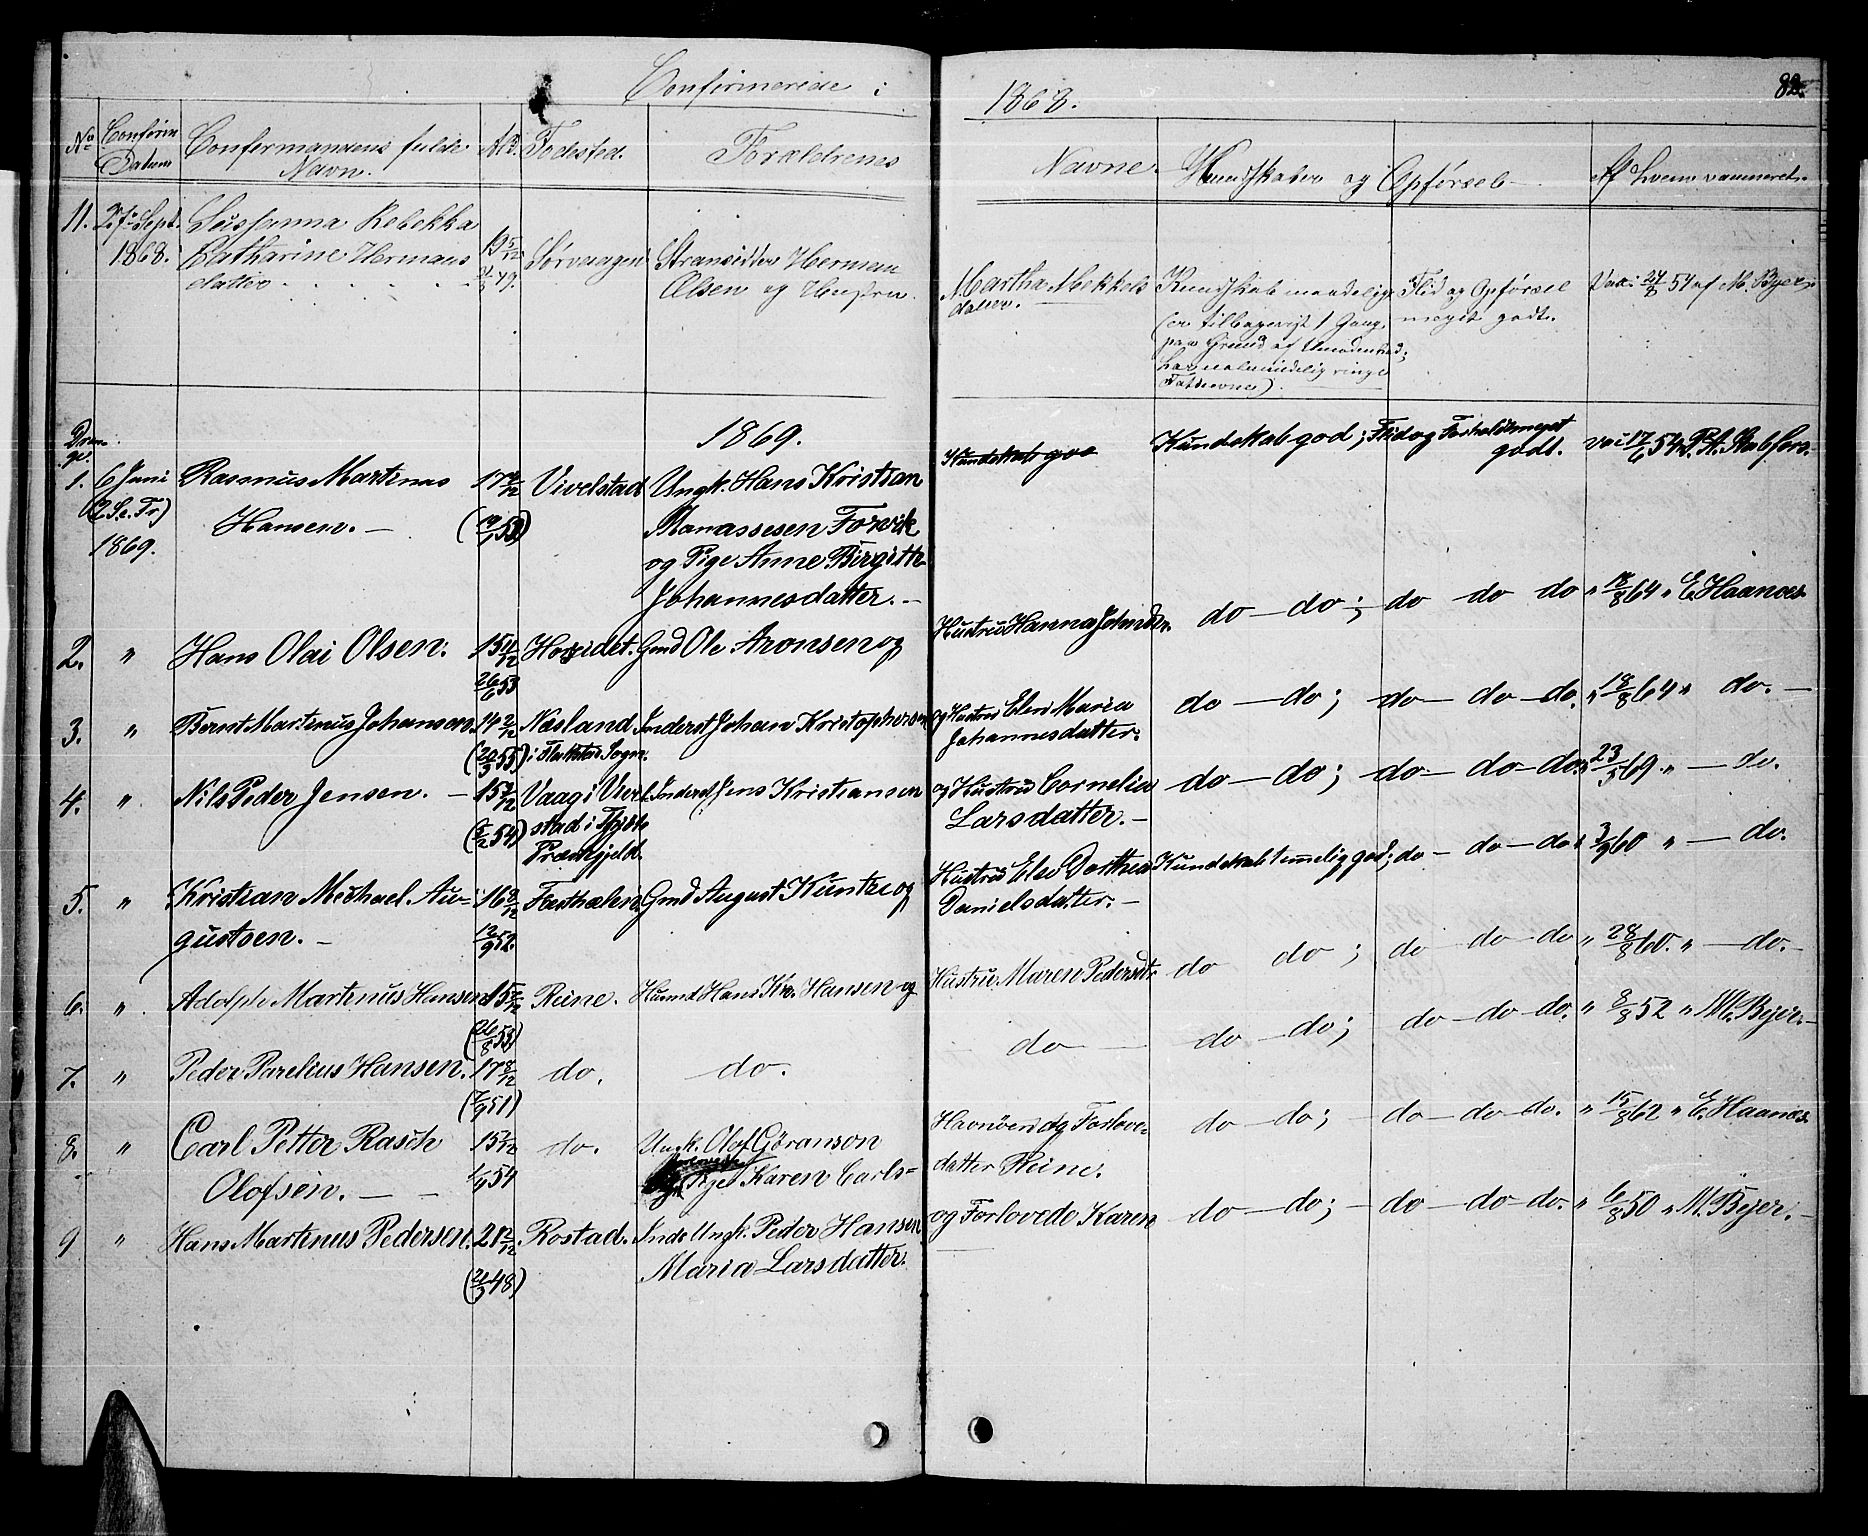 Confirmerede i 1868. 82.
No Confirm. Datum Confirmandens fulde Navn. Ald. Fødested. Forældrenes Navne. Kundskaber og Opførsel Af hvem vaccineret.
11. 27. Sept. 1868. Sussanna Rebekka Catharine Hermans datter 19 5/12 49. Sørvaagen Strandsidder Herman Olsen og Hustru
Martha Mekkels datter. Kundskab maadelig (er tilbagevist 1 Gang paa Grund af Umodenhed; har ualmindelig ringe Fatteevne). Flid og Opførsel meget godt. Vac: 24/8 54 af M. Byer.
1869.
Drenge.
1. 6 Juni (2 S. e. Tr.) 1869. Rasmus Martinus Hansen. Vivelstad Ungk. Hans Kristian Manassesen Forvik og Pige Anne Birgitte Johannesdatter.
Kundskab god; Flid og Forhold meget godt.
2. " Hans Olai Olsen. 15 11/12 26/6 53 Horsidet. Gmd Ole Aronsen og
Hustru Hanna do do; do do do " 18/8 64 " E. Haanæs
3. " Bernt Martinus Johansen. 14 2/12 (20/3 55) Næsland i Flakstad Sogn. Inderst Johan Kristophersen
og Hustru Elen Maria Johannesdatter. do do; do do do. " 18/8 64 " do.
4. " Nils Peder Jensen. 15 3/12 Vaag i Inderst Jens Kristiansen
og Hustru Cornelia Larsdatter. do do; do do do. 23/5 69 " do.
5. " Kristian Michael Augustsen. 16 8/12 12/9 52. Gmd August Kuntze og
Hustru Else Dorthea Danielsdatter. Kundskab temmelig god; do do do 3/9 60 " do.
6. " Adolph Martinus Hansen 15 (26/8 53) Reine. Husmd Hans Kr. Hansen og
Hustru Maren Pedersdtr do do; do do do " 28/8 60. " do.
7. " Peder Parelius Hansen. 17 8/12 (7/9 51) do. do.
do do do; do do do. " 8/8 52 " M. Byer.
8. " Carl Petter Rasch Olofsen. 15 2/12 54 do. Ungk. Olof Göranson Pige Karen Carls=
datter Reine. do do; do do do. " 15/8 62 " E. Haanæs.
9 " Hans Martinus Pedersen. 21 2/12. (21/3 48) Rostad. Inds Ungk. Peder Hansen
og Forlovede Karen Maria Larsdatter. do do; do do do. " 6/8 50 " M. Byer.